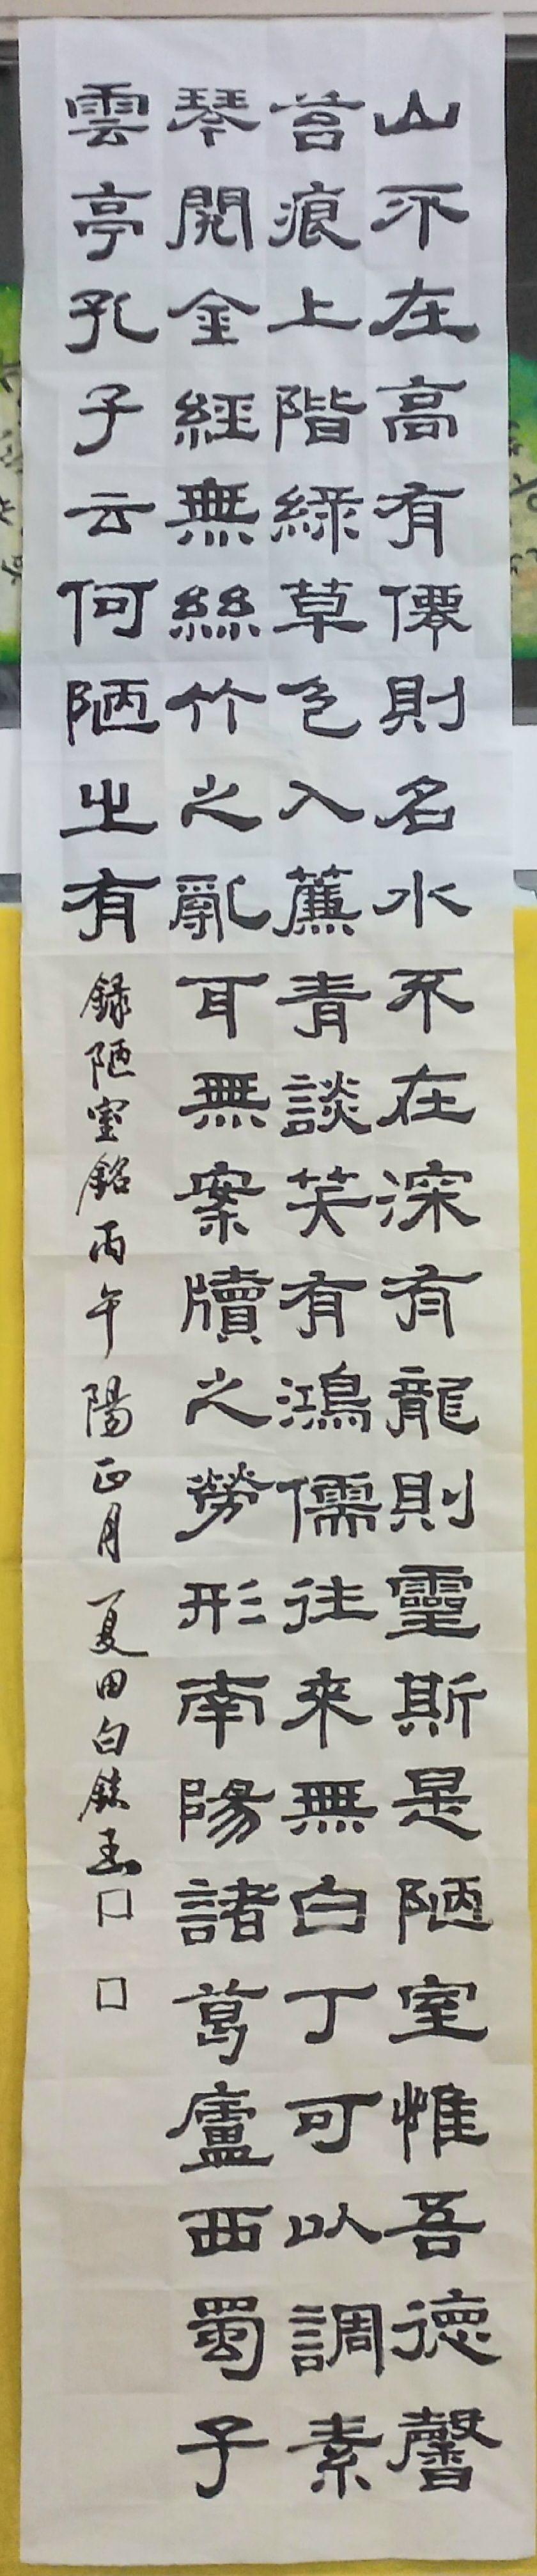 山不在高有僊則名水不在深有龍則靈斯是陋室惟吾德馨
苔痕上階綠草色入簾青談笑有鴻儒往來無白丁可以調素
琴閱金經無絲竹之亂耳無案牘之勞形南陽諸葛廬西蜀子
雲亭孔子云何陋之有
錄陋室銘丙午陽正月夏田白